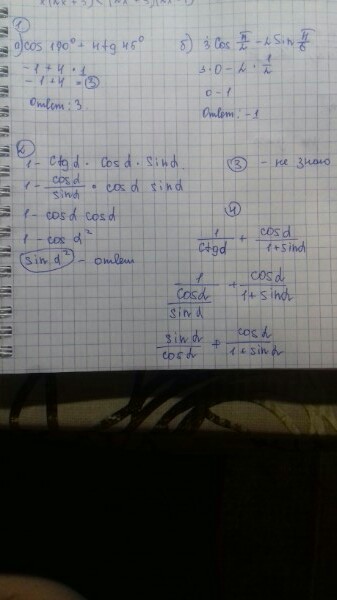 ①
а) cos 180° + 4 tg 45°
-1 + 4 · 1
-1 + 4 = 3
Ответ: 3
б) 3 cos π/2 - 2 sin π/6
3 · 0 - 2 · 1/2
0 - 1
Ответ: -1
②
1 - ctgα · cosα · sinα
1 - cosα/sinα · cosα sinα
1 - cosα cosα
1 - cos α²
sin α² - ответ
③ - не знаю
④
1/ctgα + cosα/1+sinα
1/cosα/sinα + cosα/1+sinα
sinα/cosα + cosα/1+sinα